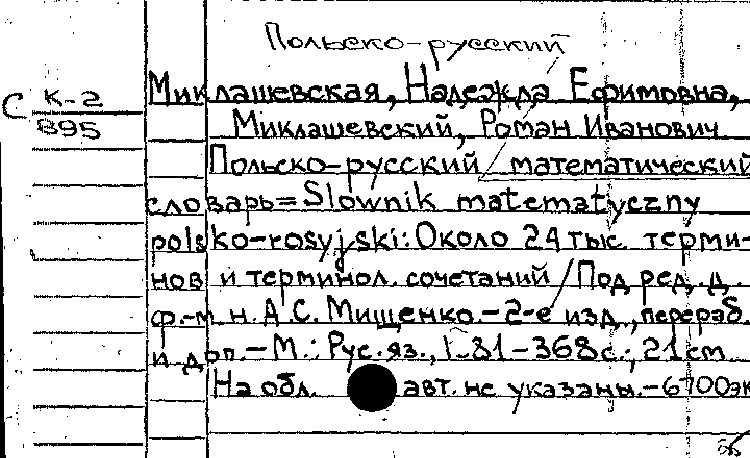 Польско-русский
Миклашевская, Надежда Ефимовна,
С К-2
895
Миклашевский, Роман Иванович
Польско-русский математический
словарь=Slownik matematyczny
polsko-rosyjski: Около 24 тыс. терми-
нов и терминол. сочетаний/Под ред. д.
ф.-м.н. А.С. Мищенко.-2-е изд., перераб.
и доп.-М.: Рус. яз., 1981-368с.; 21см
На обл. авт. не указаны.-6700эк